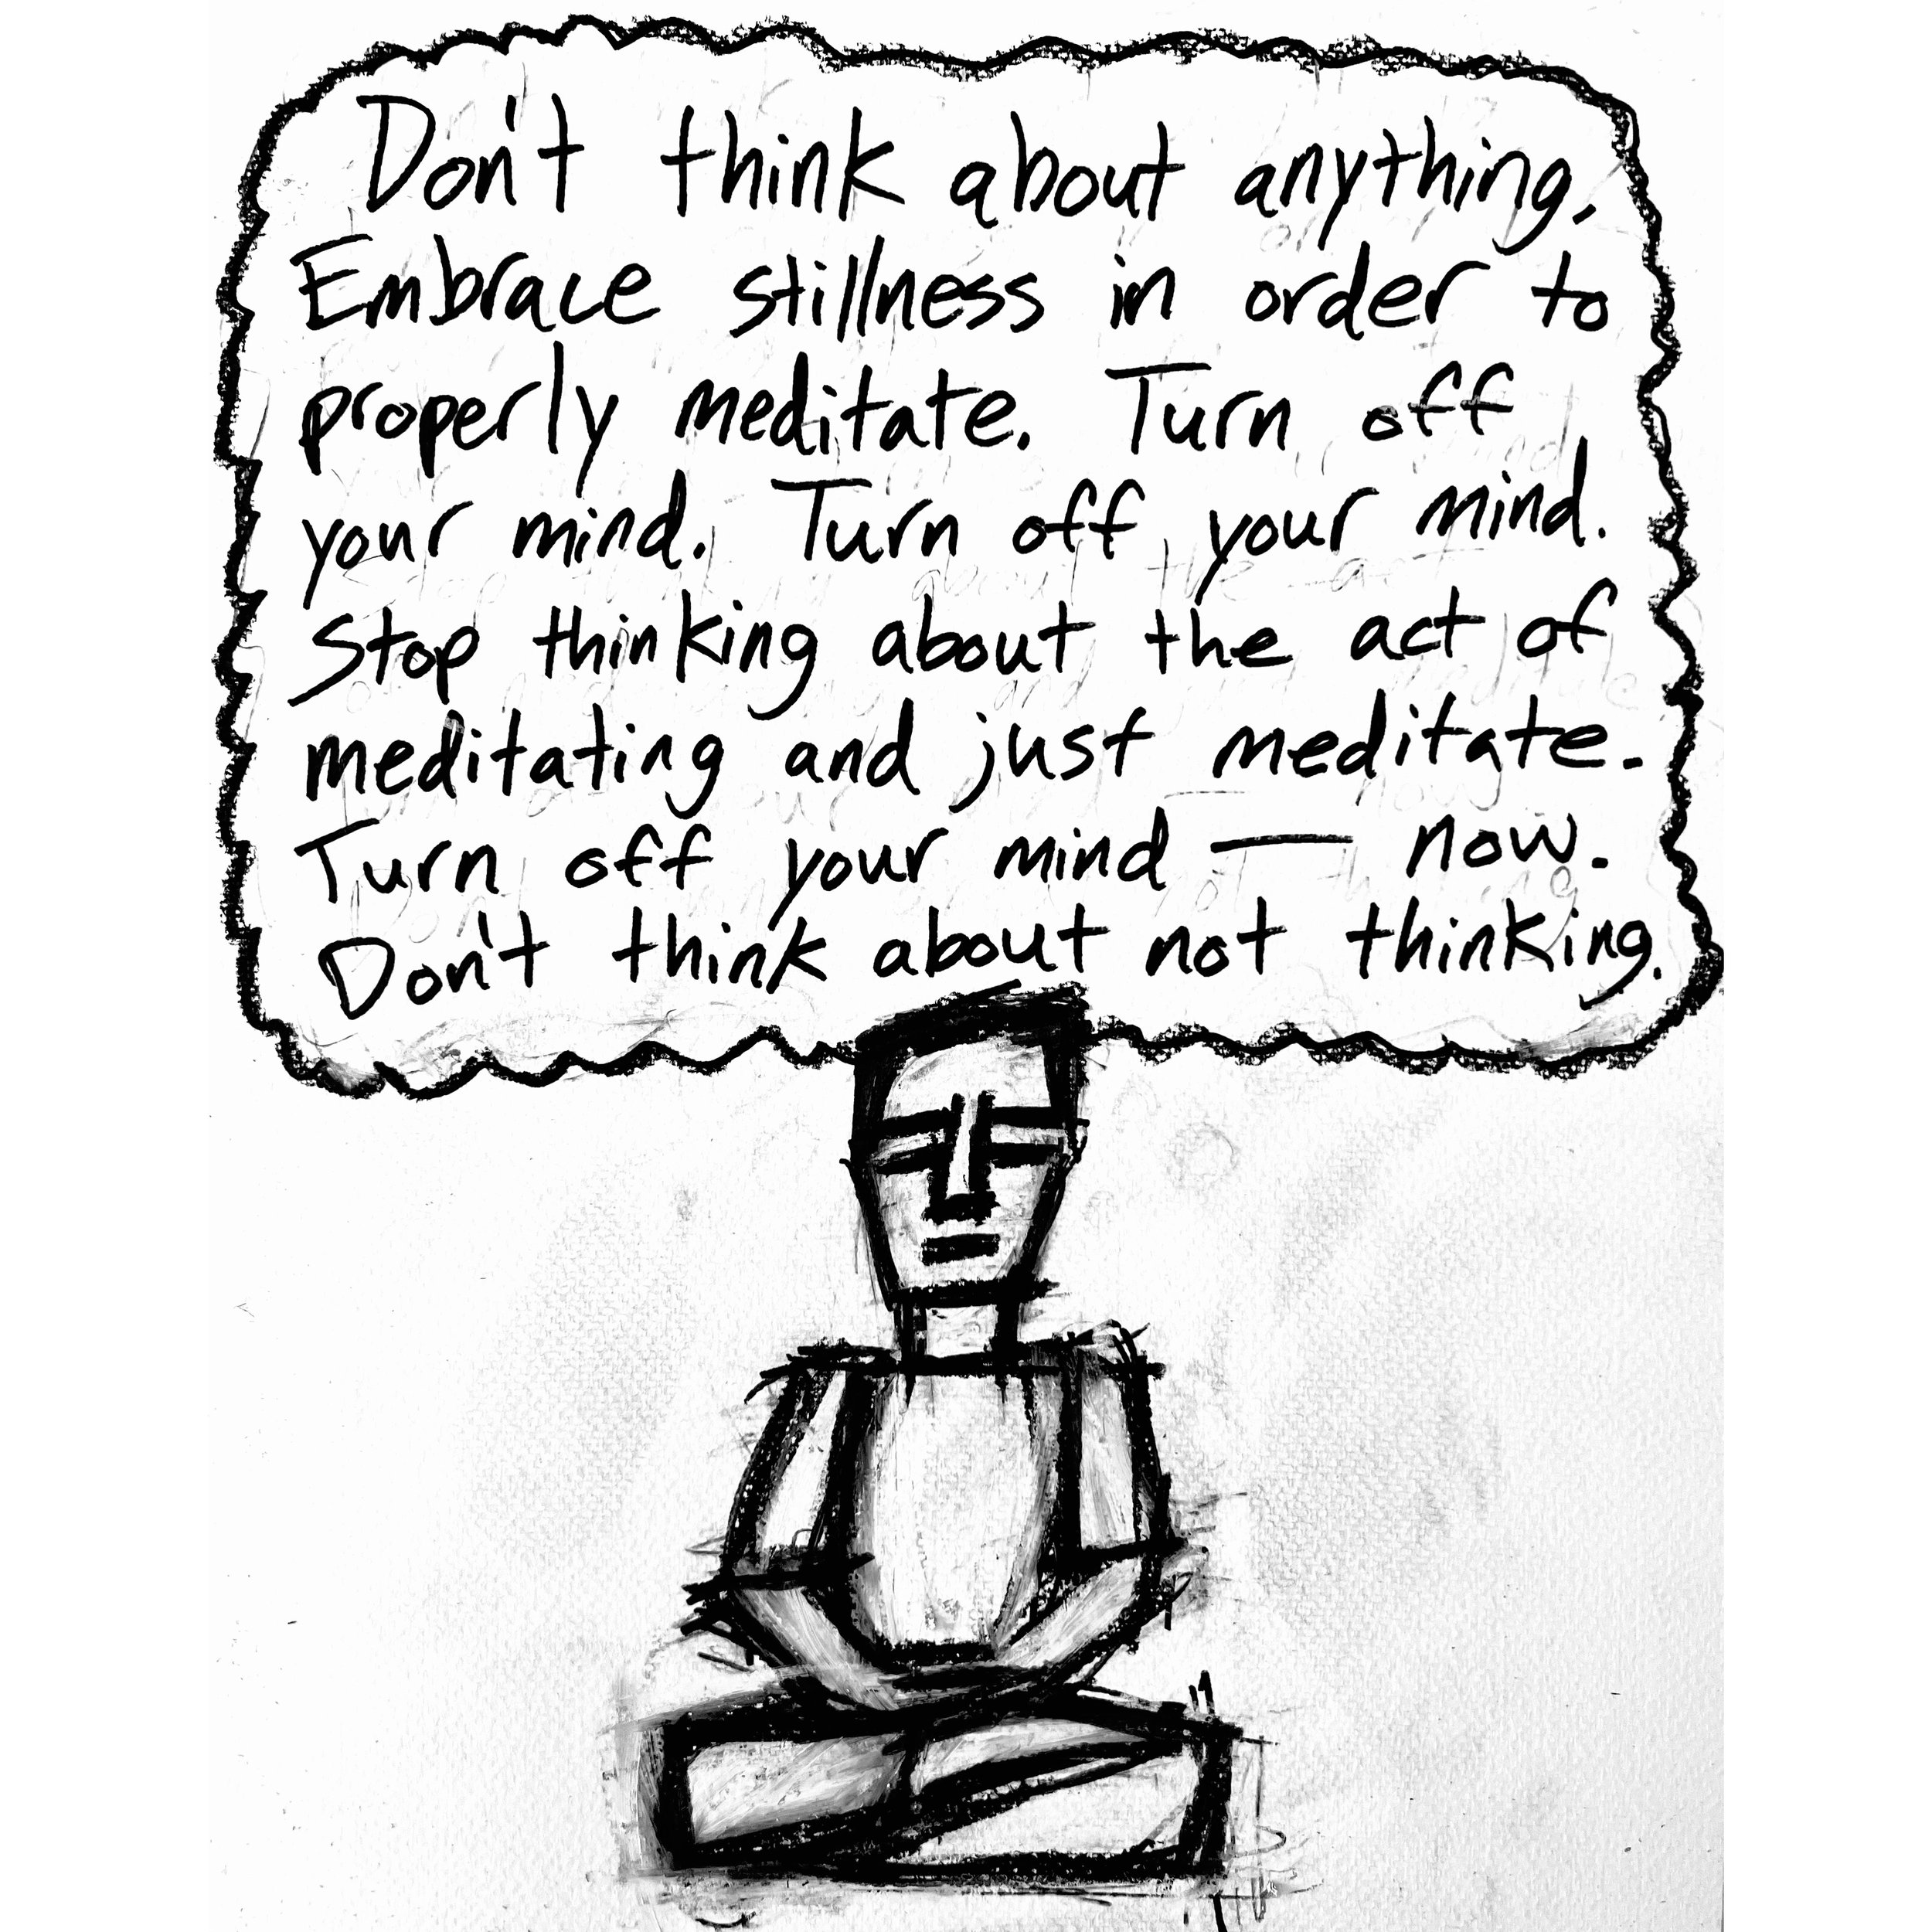 Don't think about anything.
Embrace stillness in order to
properly meditate. Turn off
your mind. Turn off your mind.
Stop thinking about the act of
meditating and just meditate.
Turn off your mind — now.
Don't think about not thinking.